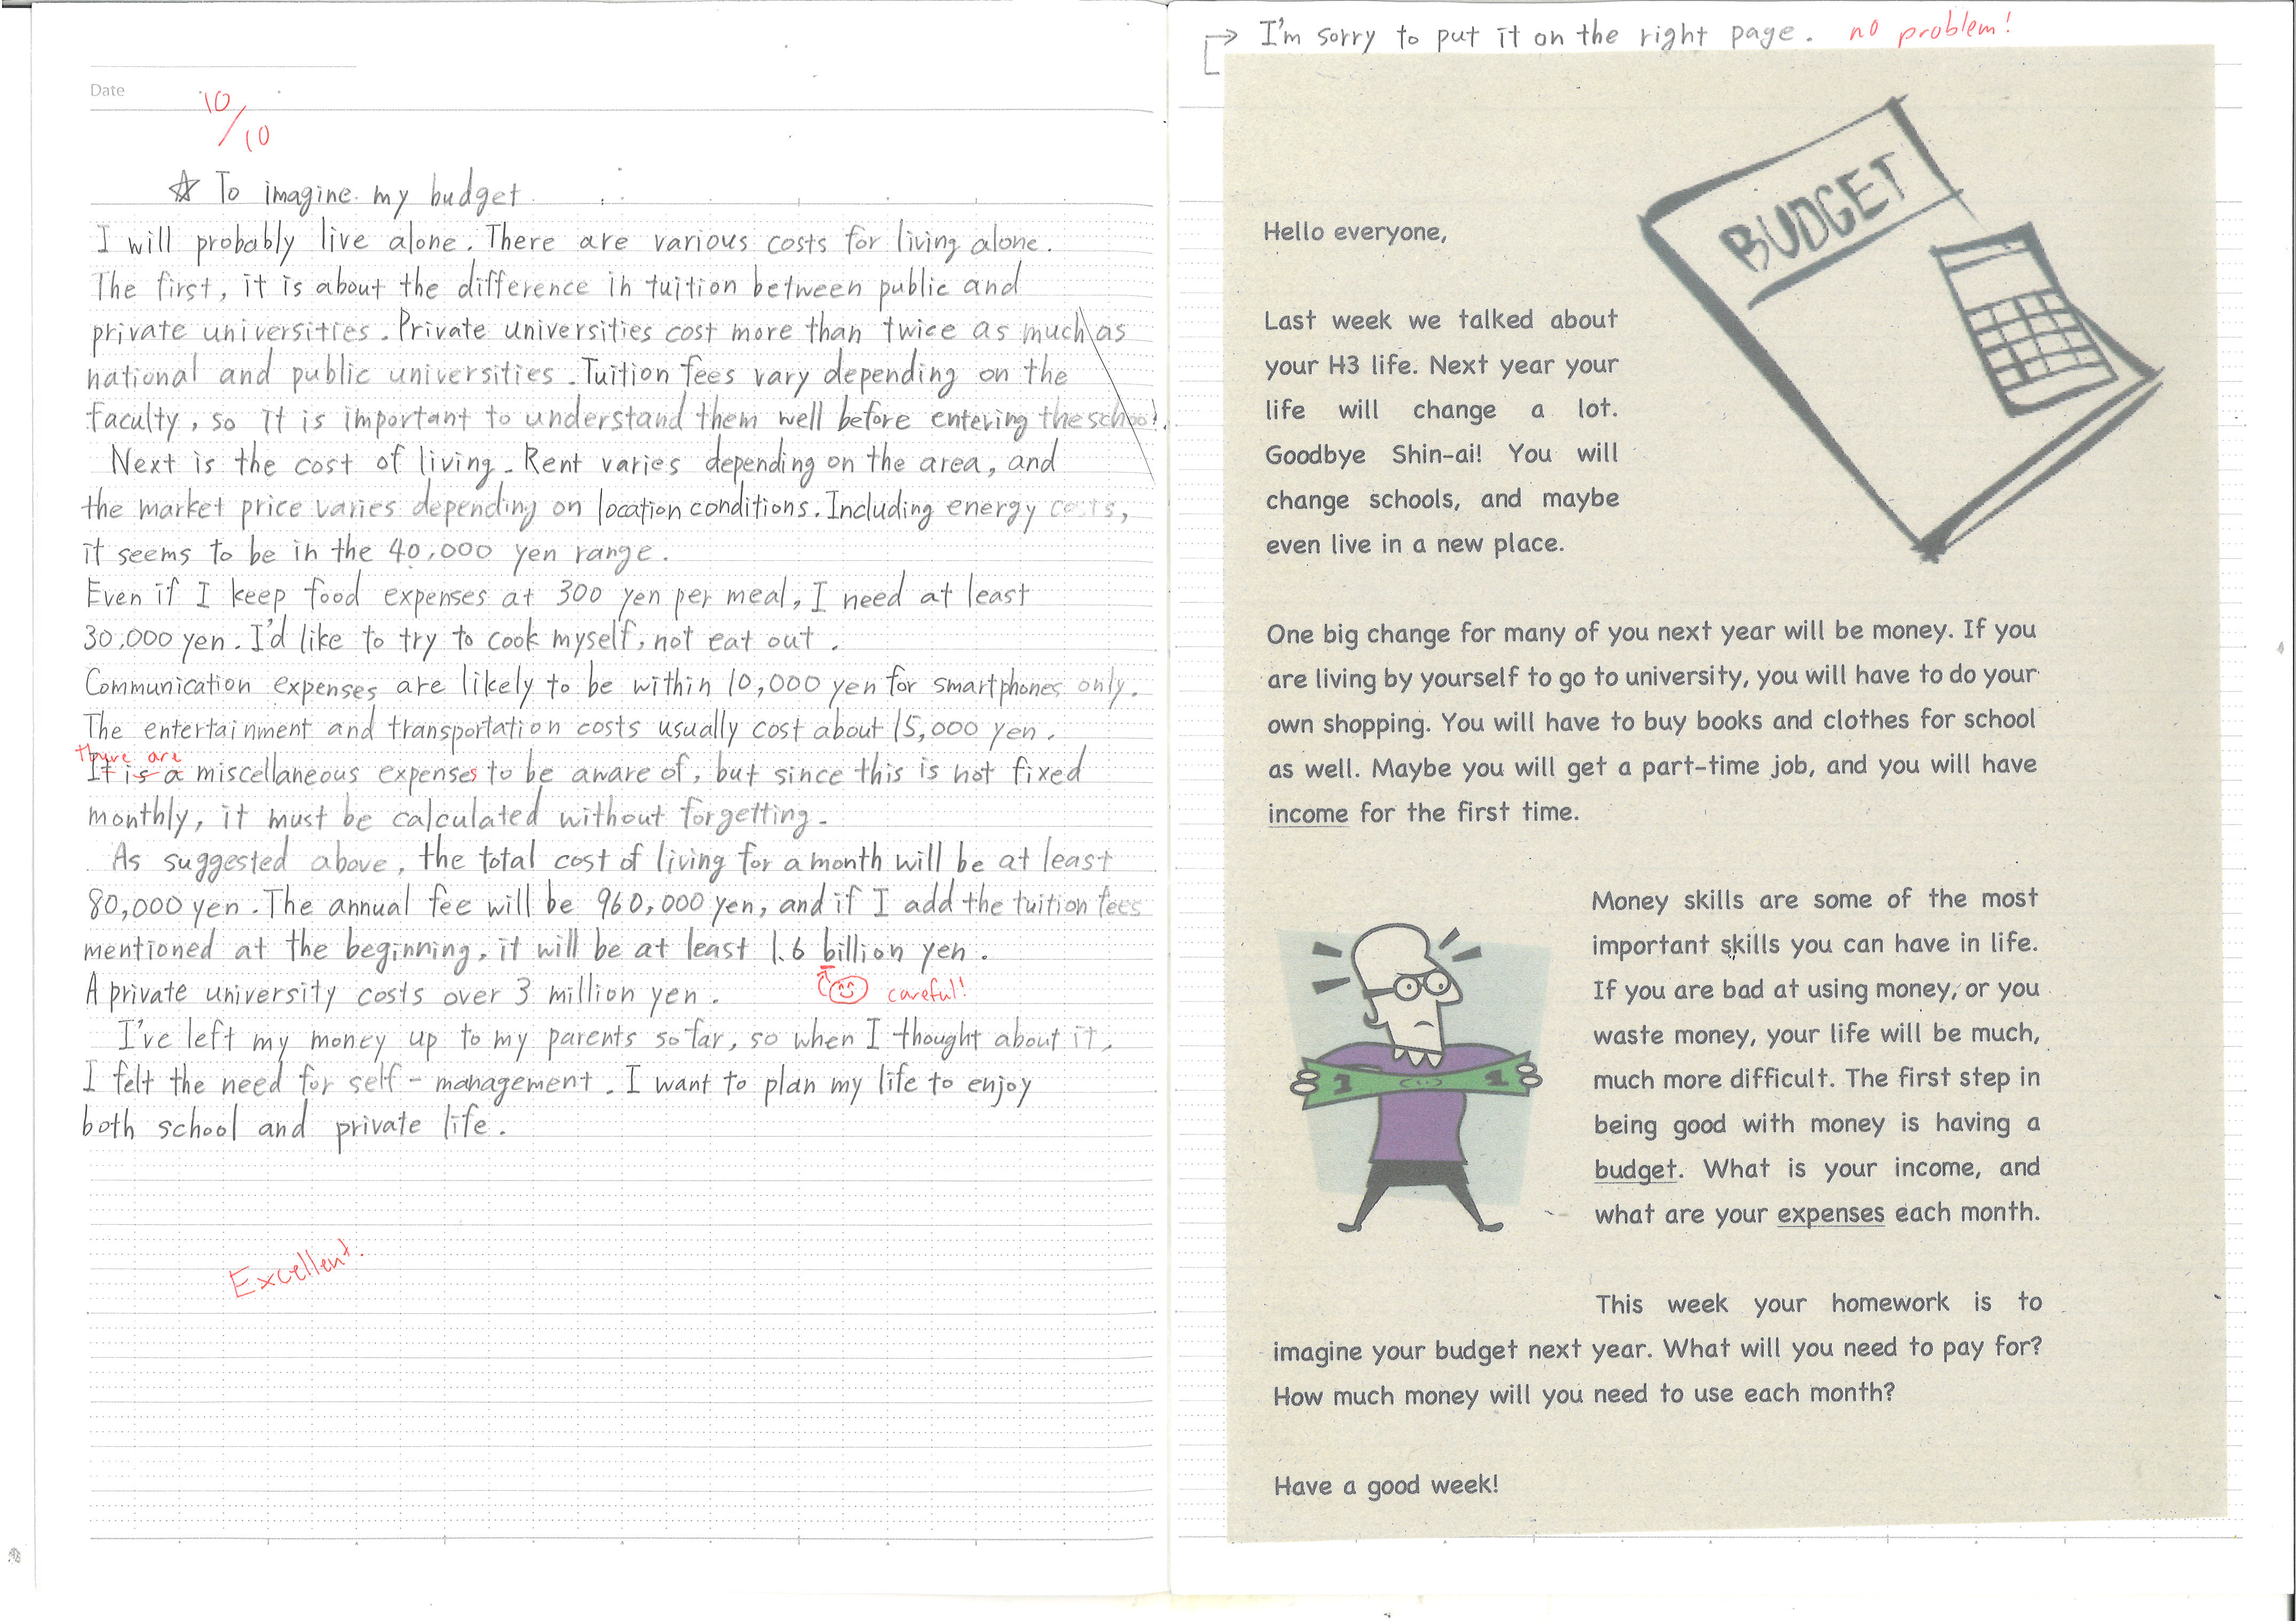 Date
10/10
☆ To imagine my budget
I will probably live alone. There are various costs for living alone.
The first, it is about the difference in tuition between public and
private universities. Private universities cost more than twice as much as
national and public universities. Tuition fees vary depending on the
faculty, so it is important to understand them well before entering the school.
Next is the cost of living. Rent varies depending on the area, and
the market price varies depending on location conditions. Including energy costs,
it seems to be in the 40,000 yen range.
Even if I keep food expenses at 300 yen per meal, I need at least
30,000 yen. I'd like to try to cook myself, not eat out.
Communication expenses are likely to be within 10,000 yen for smartphones only.
The entertainment and transportation costs usually cost about 15,000 yen.
there are
It is a miscellaneous expenses to be aware of, but since this is not fixed
monthly, it must be calculated without forgetting.
As suggested above, the total cost of living for a month will be at least
80,000 yen. The annual fee will be 960,000 yen, and if I add the tuition fees
mentioned at the beginning, it will be at least 1.6 billion yen.
careful!
A private university costs over 3 million yen.
I've left my money up to my parents so far, so when I thought about it,
I felt the need for self-management. I want to plan my life to enjoy
both school and private life.
Excellent.
→ I'm sorry to put it on the right page. no problem!
BUDGET
Hello everyone,
Last week we talked about
your H3 life. Next year your
life will change a lot.
Goodbye Shin-ai! You will
change schools, and maybe
even live in a new place.
One big change for many of you next year will be money. If you
are living by yourself to go to university, you will have to do your
own shopping. You will have to buy books and clothes for school
as well. Maybe you will get a part-time job, and you will have
income for the first time.
Money skills are some of the most
important skills you can have in life.
If you are bad at using money, or you
waste money, your life will be much,
much more difficult. The first step in
being good with money is having a
budget. What is your income, and
what are your expenses each month.
1 1
This week your homework is to
imagine your budget next year. What will you need to pay for?
How much money will you need to use each month?
Have a good week!